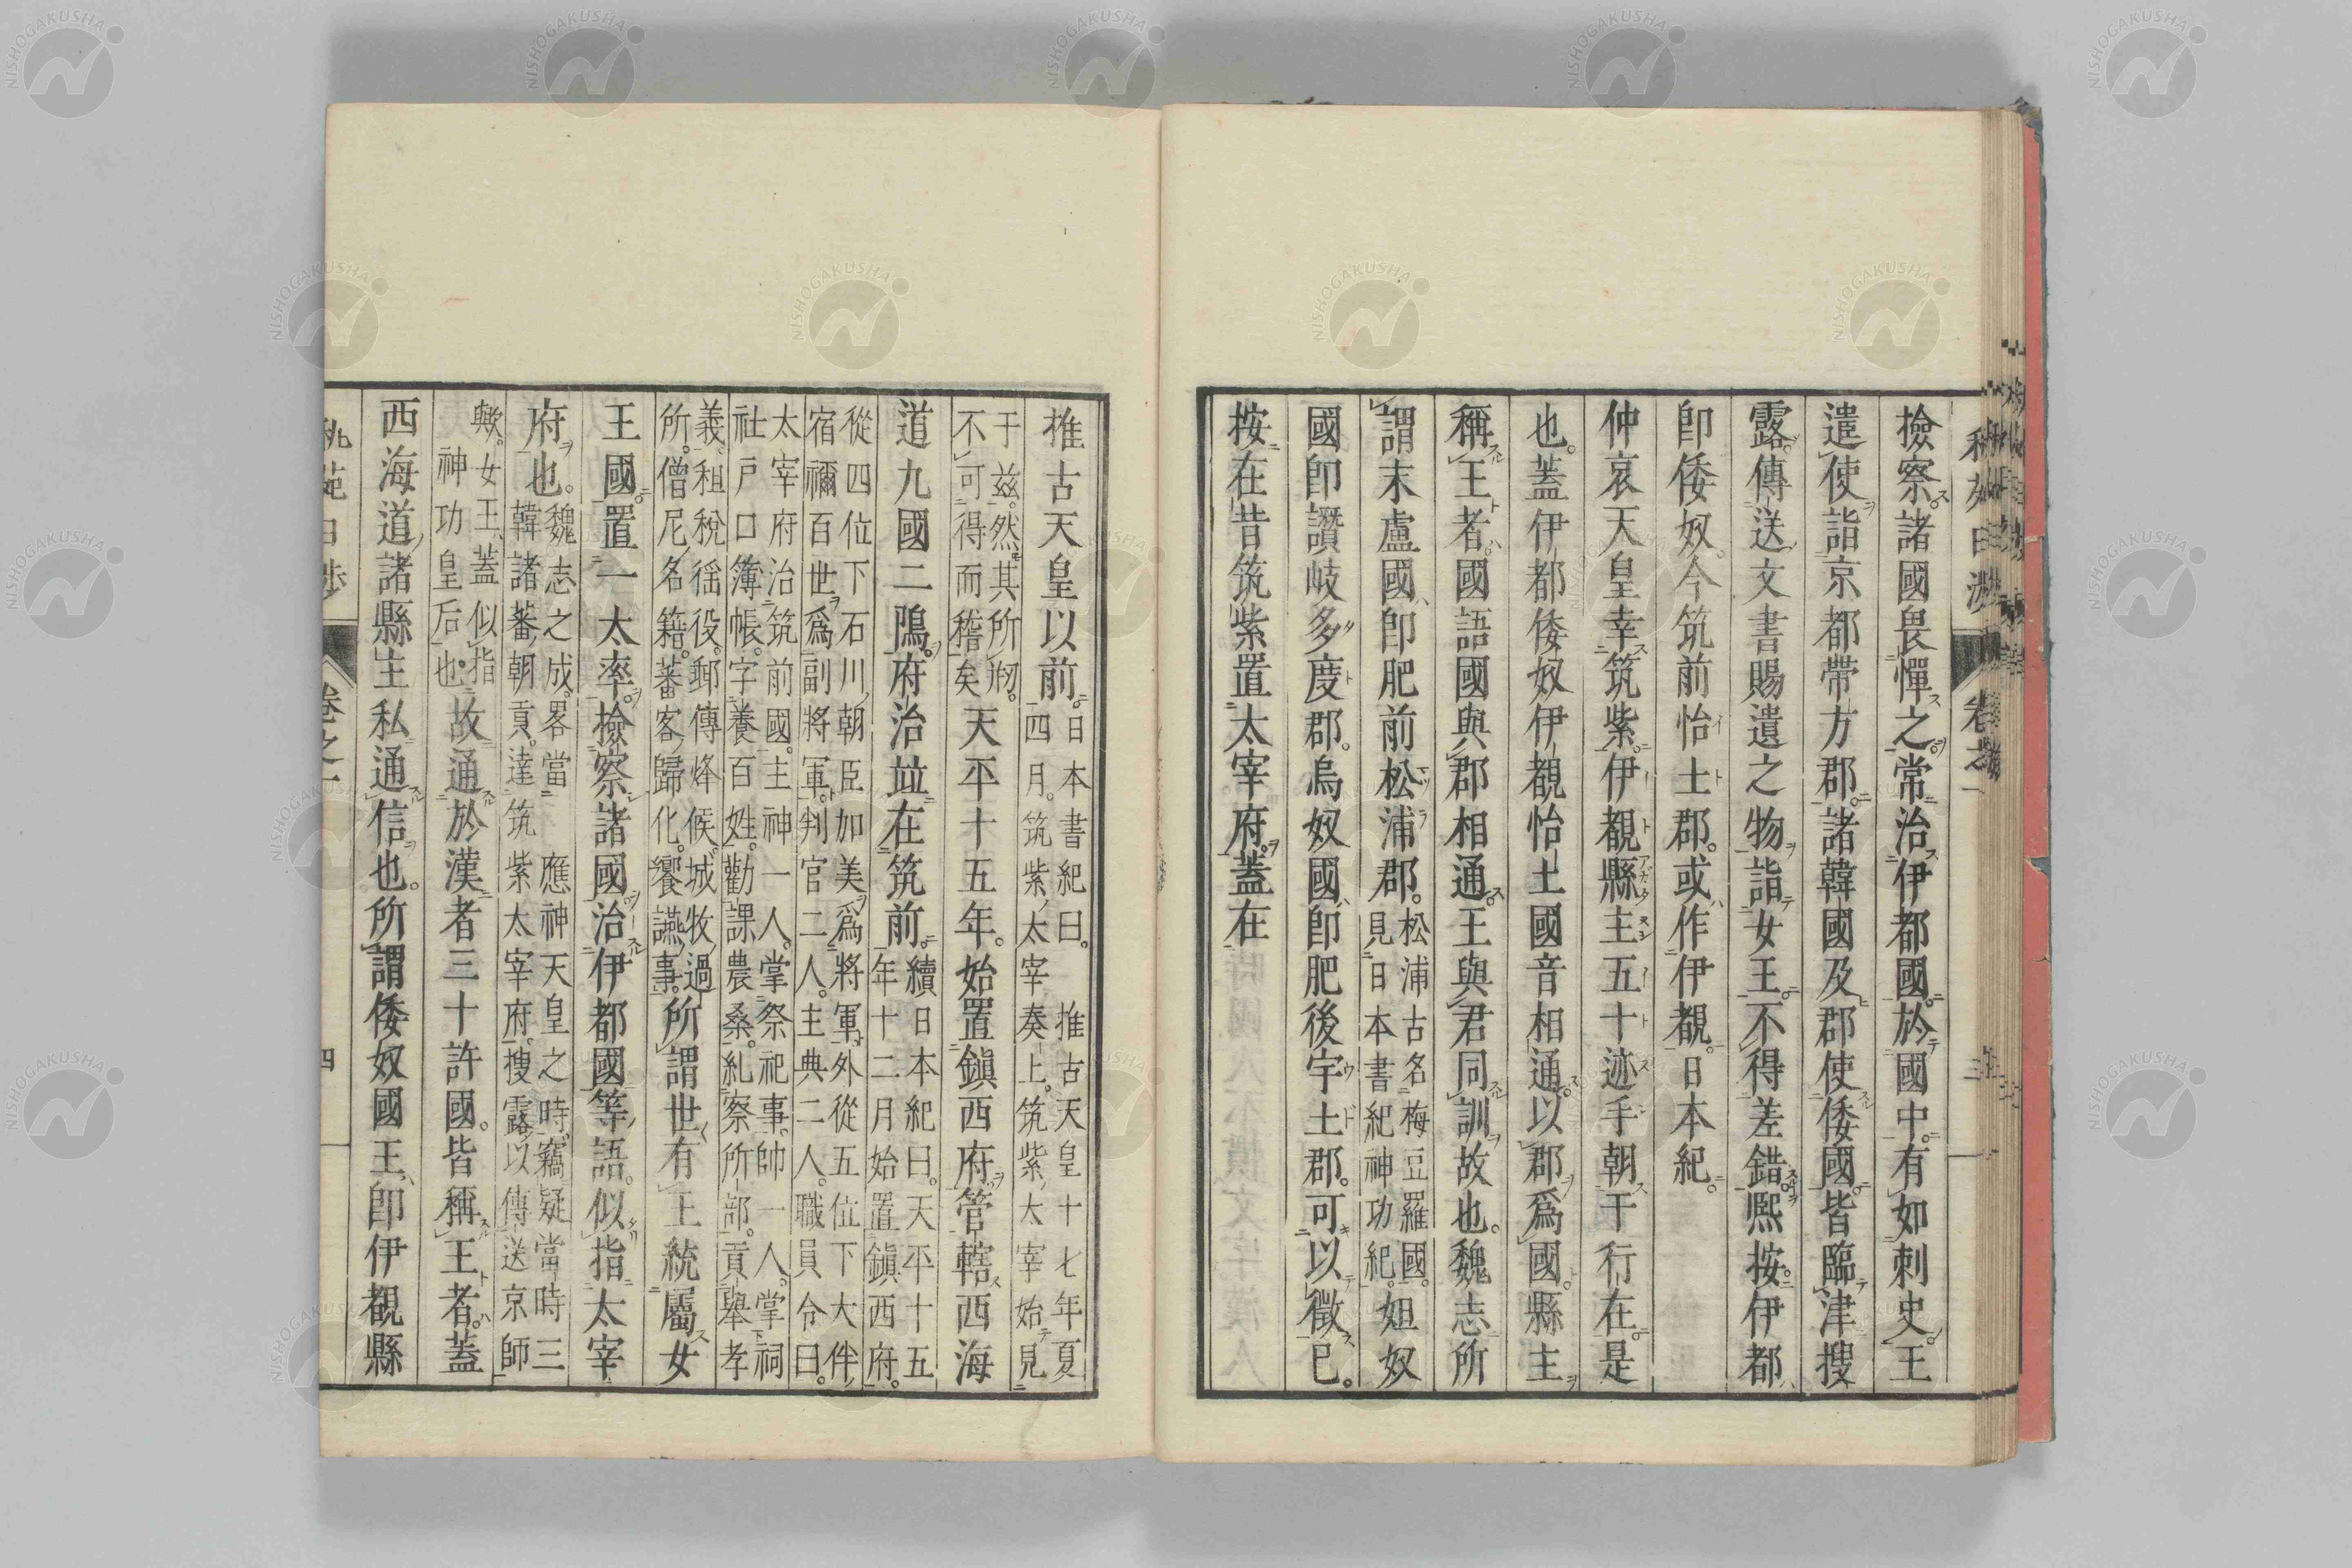 檢察諸國畏憚之常治伊都國於國中有如刺史王
遣使詣京都帶方郡諸韓國及郡使倭國皆臨津搜
露傳送文書賜遺之物詣女王不得差錯熈按伊都
即倭奴今筑前怡土郡或作伊覩日本紀
仲哀天皇幸筑紫伊覩縣主五十迹手朝于行在是
也蓋伊都倭奴伊覩怡土國音相通以郡爲國縣主
稱王者國語國與郡相通王與君同訓故也魏志所
謂末盧國即肥前松浦郡松浦古名梅豆羅國
見日本書紀神功紀妲奴
國即讚岐多度郡烏奴國即肥後宇土郡可以徵已
按在昔筑紫置太宰府蓋在
推古天皇以前日本書紀曰推古天皇十七年夏
四月筑紫太宰奏上筑紫太宰始見
于兹然其所剏
不可得而稽矣天平十五年始置鎭西府管轄西海
道九國二隝府治竝在筑前續日本紀曰天平十五
年十二月始置鎭西府
從四位下石川朝臣加美爲將軍外從五位下大伴
宿禰百世爲副將軍判官二人主典二人職員令曰
太宰府治筑前國主神一人掌祭祀事帥一人掌祠
社戸口簿帳字養百姓勸課農桑糺察所部貢舉孝
義租稅徭役郵傳烽候城牧過
所僧尼名籍蕃客歸化饗讌事所謂世有王統屬女
王國置一太率檢察諸國治伊都國等語似指太宰
府也魏志之成畧當應神天皇之時竊疑當時三
韓諸蕃朝貢達筑紫太宰府搜露以傳送京師
歟女王蓋似指
神功皇后也故通於漢者三十許國皆稱王者蓋
西海道諸縣主私通信也所謂倭奴國王即伊覩縣
四
NISHOGAKUSHA